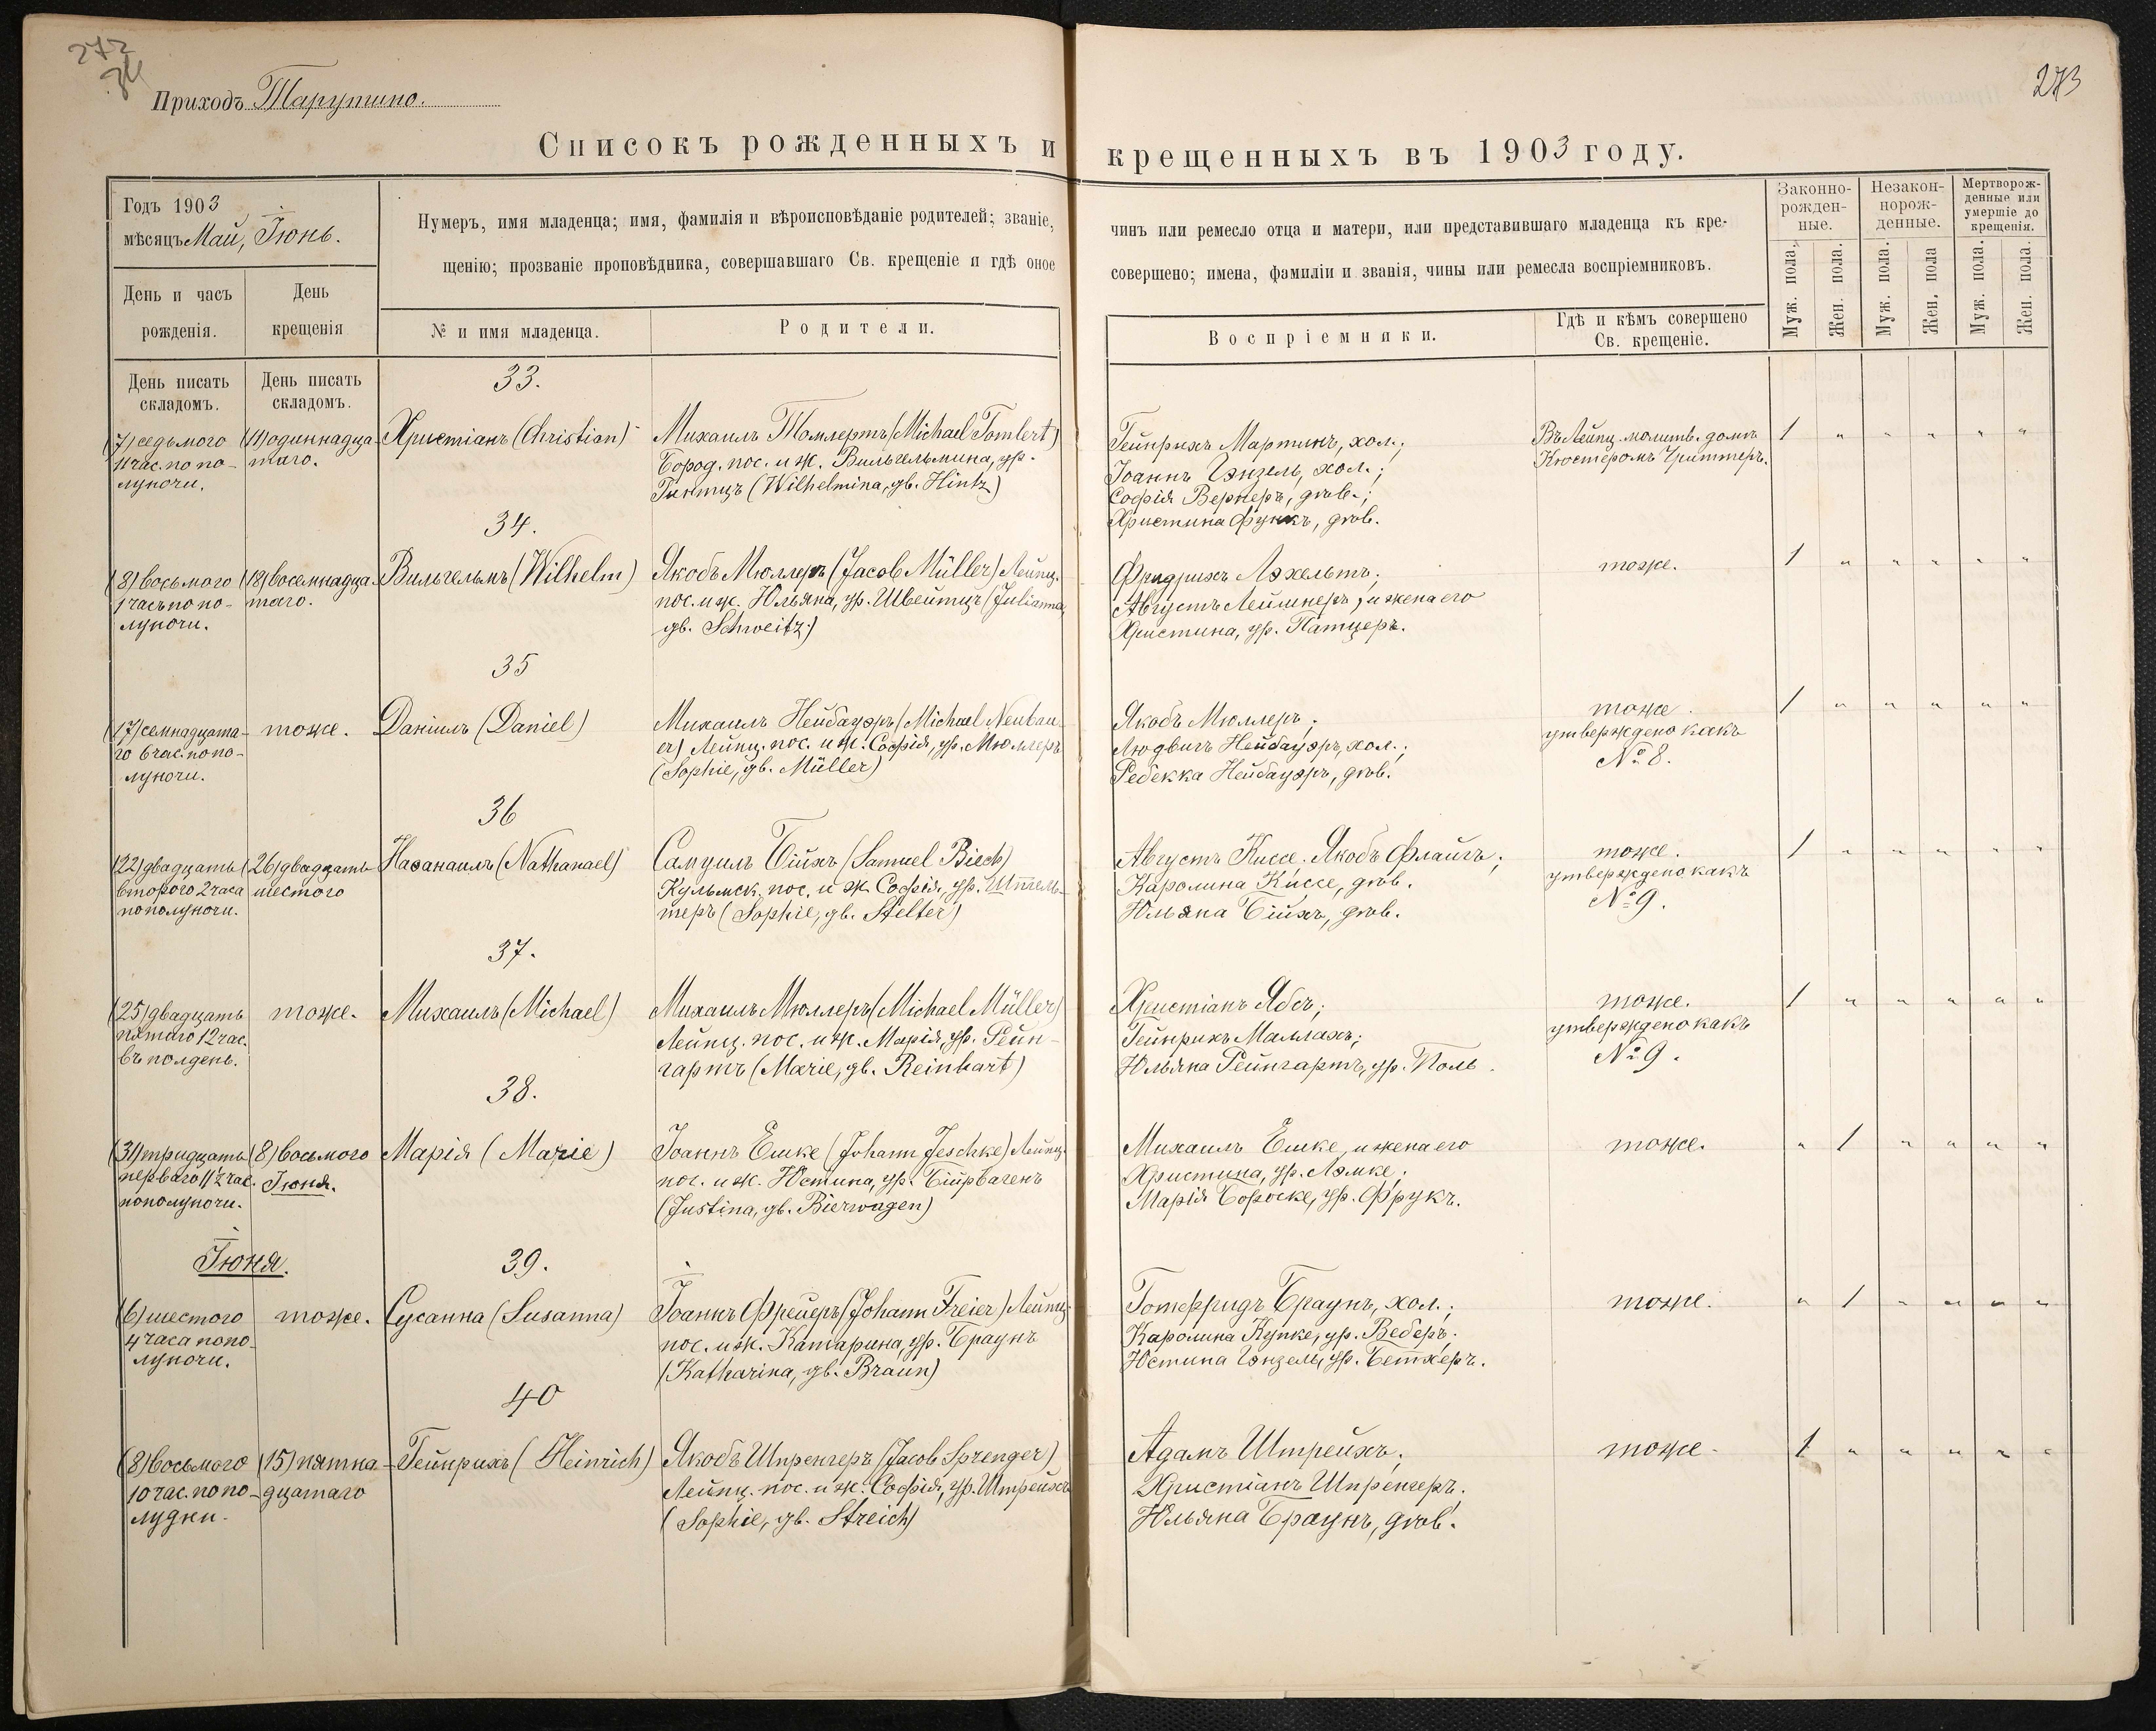 272
273
Приходъ Тарутино.
Списокъ рожденныхъ и крещенныхъ въ 1903 году.
Годъ 1903
мѣсяцъ Май, Іюнь.
Нумеръ, имя младенца; имя, фамилія и вѣроисповѣданіе родителей; званіе, чинъ или ремесло отца и матери, или представившаго младенца къ кре-
щенію; прозваніе проповѣдника, совершавшаго Св. крещеніе и гдѣ оное совершено; имена, фамиліи и званія, чины или ремесла воспріемниковъ.
Законно-
рожден-
ные.
Незакон-
норож-
денные.
Мертворож-
денные или
умершіе до
крещенія.
День и часъ
рожденія.
День
крещенія
№ и имя младенца.
Родители.
Воспріемники.
Гдѣ и кѣмъ совершено
Св. крещеніе.
Муж. пола.
Жен. пола.
Муж. пола.
Жен. пола
Муж. пола.
Жен. пола.
День писать
складомъ.
День писать
складомъ.
33.
(7) седьмого
11 час. по по-
луночи.
(11) одиннадца-
таго.
Христіанъ (Christian)
Михаилъ Томлертъ (Michael Tomlert)
Бород. пос. и ж. Вильгельмина, ур.
Гинтцъ (Wilhelmina, gb. Hintz)
Гейнрихъ Мартинъ, хол.;
Іоаннъ Гэнзель, хол.;
Софія Вернеръ, дѣв.;
Христина Функъ, дѣв.
Въ Лейпц. молитв. домѣ
Кюстеромъ Триттеръ.
1 " " " " "
34.
(8) восьмого
1 часъ по по-
луночи.
(18) восемнадца-
таго.
Вильгельмъ (Wilhelm)
Якобъ Мюллеръ (Jacob Müller) Лейпц.
пос. и ж. Юльяна, ур. Швейтцъ (Julianna,
gb. Schweitz.)
Фридрихъ Лэхельтъ;
Августъ Лейшнеръ, и жена его
Христина, ур. Патцеръ.
тоже.
1 " " " " "
35
(17) семнадцата-
го 6 час. по по-
луночи.
тоже.
Даніилъ (Daniel)
Михаилъ Нейбауэръ (Michael Neubau-
er) Лейпц. пос. и ж. Софія, ур. Мюллеръ
(Sophie, gb. Müller)
Якобъ Мюллеръ;
Людвигъ Нейбауэръ, хол.;
Ребекка Нейбауэръ, дѣв.
тоже.
утверждено какъ
№ 8.
1 " " " " "
36
(22) двадцать
второго 2 часа
пополуночи.
(26) двадцать
шестого
Наѳанаилъ (Nathanael)
Самуилъ Бійхъ (Samuel Biech)
Кульмск. пос. и ж. Софія, ур. Штель-
теръ (Sophie, gb. Stelter)
Августъ Киссе. Якобъ Флайгъ;
Каролина Киссе, дѣв.
Юльяна Бійхъ, дѣв.
тоже.
утверждено какъ
№ 9.
1 " " " " "
37.
(25) двадцать
пятаго 12 час.
въ полдень.
тоже.
Михаилъ (Michael)
Михаилъ Мюллеръ (Michael Müller)
Лейпц. пос. и ж. Марія, ур. Рейн-
гартъ (Marie, gb. Reinhart)
Христіанъ Ябсъ;
Гейнрихъ Маллахъ;
Юльяна Рейнгартъ, ур. Поль.
тоже.
утверждено какъ
№ 9.
1 " " " " "
38.
(31) тридцать
перваго 11½ час.
пополуночи.
(8) восьмого
Іюня.
Марія (Marie)
Іоаннъ Ешке (Johann Jeschke) Лейпц.
пос. и ж. Юстина, ур. Бійрвагенъ
(Justina, gb. Bierwagen)
Михаилъ Ешке, и жена его
Христина, ур. Лэмке;
Марія Бороске, ур. Фрукъ.
тоже.
" 1 " " " "
Іюня.
39.
(6) шестого
4 часа попо-
луночи.
тоже.
Сусанна (Susanna)
Іоаннъ Фрейеръ (Johann Freier) Лейпц.
пос. и ж. Катарина, ур. Браунъ
(Katharina, gb. Braun)
Готфридъ Браунъ, хол.;
Каролина Купке, ур. Веберъ.
Юстина Гэнзель, ур. Бетхеръ.
тоже.
" 1 " " " "
40
(8) восьмого
10 час. по по-
лудни.
(15) пятна-
дцатаго
Гейнрихъ (Heinrich)
Якобъ Шпренгеръ (Jacob Sprenger)
Лейпц. пос. и ж. Софія, ур. Штрейхъ
(Sophie, gb. Streich)
Адамъ Штрейхъ;
Христіанъ Шпренгеръ.
Юльяна Браунъ, дѣв.
тоже.
1 " " " " "